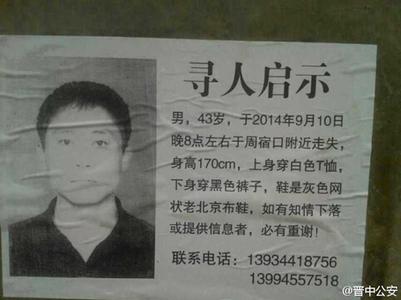 寻人启示
男，43岁，于2014年9月10日
晚8点左右于周宿口附近走失，
身高170cm，上身穿白色T恤，
下身穿黑色裤子，鞋是灰色网
状老北京布鞋，如有知情下落
或提供信息者，必有重谢！
联系电话：13934418756
13994557518
@晋中公安